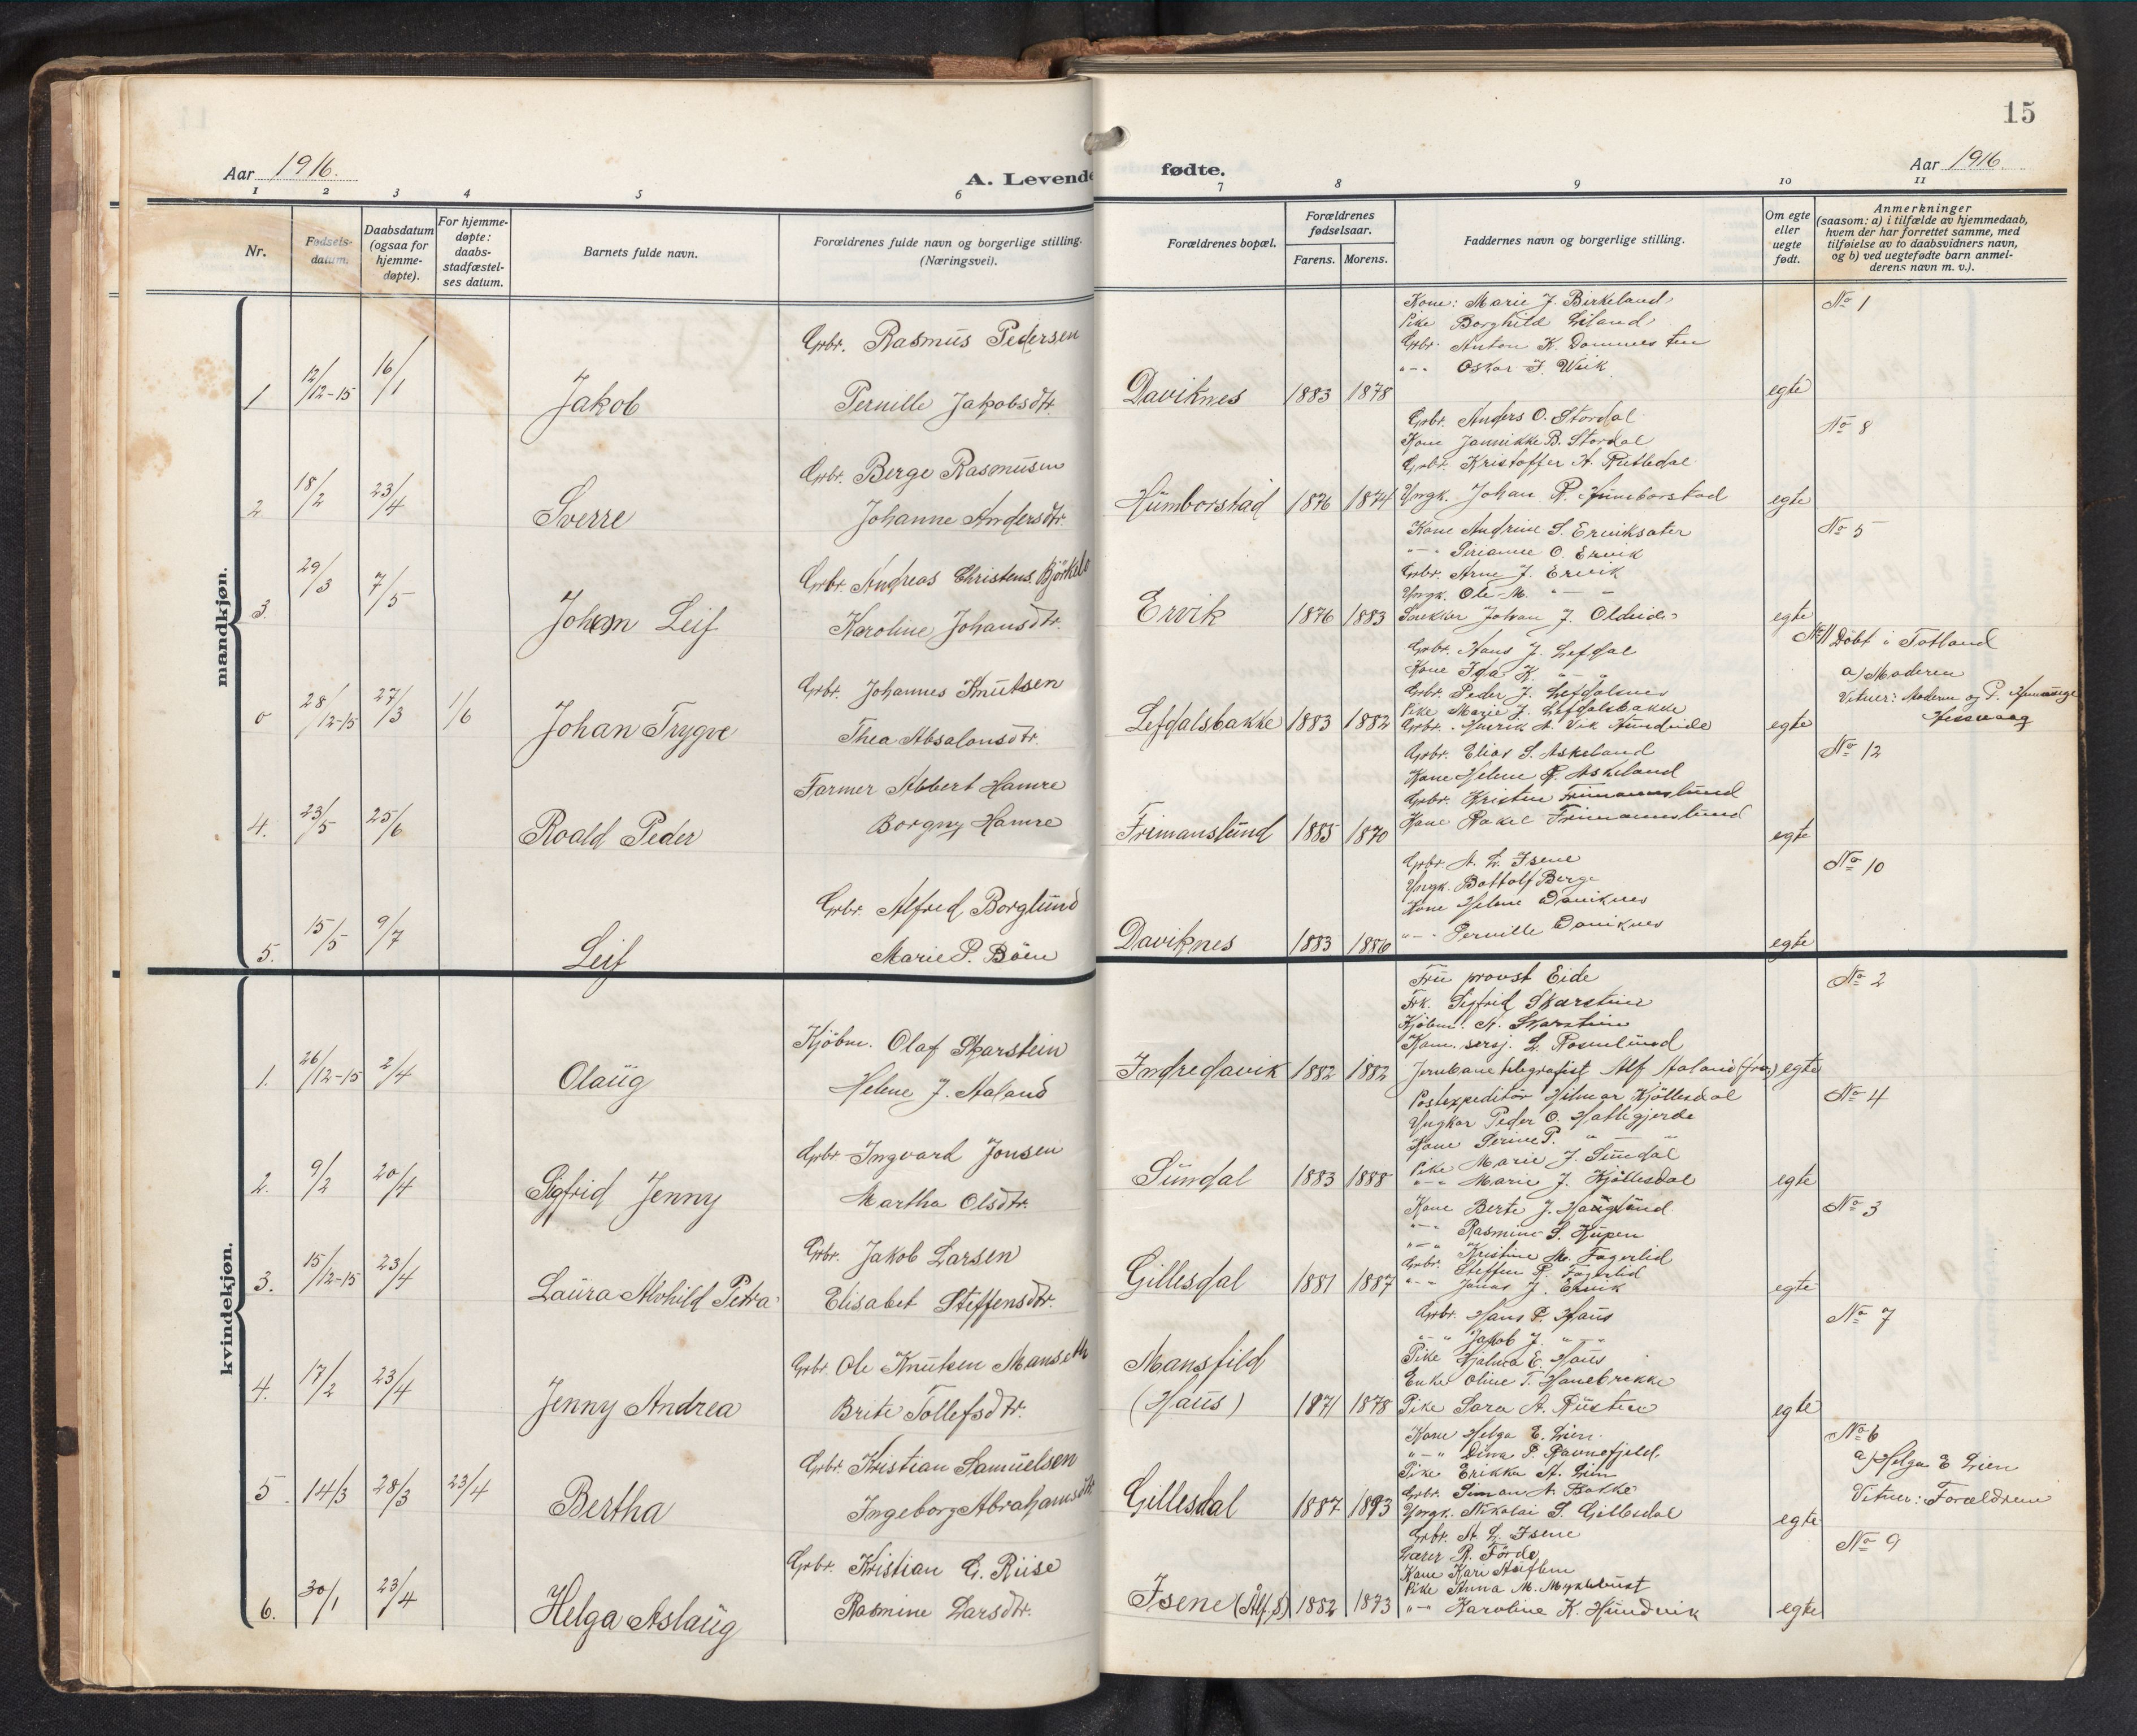 15
Aar 1916.
A. Levende fødte.
Aar 1916
1 2 3 4 5 6 7 8 9 10 11
Nr.
Fødsels-
datum.
Daabsdatum
(ogsaa for
hjemme-
døpte).
For hjemme-
døpte:
daabs-
stadfæstel-
ses datum.
Barnets fulde navn.
Forældrenes fulde navn og borgerlige stilling.
(Næringsvei).
Forældrenes bopæl.
Forældrenes
fødselsaar.
Farens. Morens.
Faddernes navn og borgerlige stilling.
Om egte
eller
uegte
født.
Anmerkninger
(saasom: a) i tilfælde av hjemmedaab,
hvem der har forrettet samme, med
tilføielse av to daabsvidners navn,
og b) ved uegtefødte barn anmel-
derens navn m. v.).
mandkjøn.
Kone: Marie J. Birkeland
Pike Borghild Liland
Grbr. Anton K. Domnesten
"-" Oskar J. Wiik
Nº 1
Grbr. Rasmus Pedersen
1 12/12-15 16/1 Jakob Pernille Jakobsdtr Daviknes 1883 1878 egte
Grbr. Anders O. Stordal
Kone Jannikke B. Stordal
Grbr. Kristoffer A. Rutledal
Yngk. Johan R. Humborstad
Nº 8
Grbr. Berge Rasmusen
2 18/2 23/4 Sverre Johanne Andersdtr Humborstad 1876 1874 egte
Kone Andrine S. Erviksæter
"-" O. Ervik
Grbr. Arne J. Ervik
Yngk. Ole M. "-"
Snekker Johan J. Oldeide
Nº 5
Grbr. Andreas Christens. Björkelo
3. 29/3 7/5 Johan Leif Karoline Johansdtr. Ervik 1876 1883 egte
Grbr. Hans J. Lefdal
Kone Ida K. "-"
Grbr. Peder J. Lefdalsnes
Pike Marie J. Lefdalsbakke
Grbr. Henrik A. Vik Hundeide
Nº 11 Döbt i Totland
a) Moderen
Vitner: Moderen og P.
Hessvaag
Grbr. Johannes Knutsen
0 28/12-15 27/3 1/6 Johan Trygve Thea Absalonsdtr. Lefdalsbakke 1883 1882 egte
Grbr. Elias S. Askeland
Kone Helene R. Askeland
Grbr. Kristen Frimannslund
Kone Rakel Frimannslund
Nº 12
Farmer Albert Hamre
4. 23/5 25/6 Roald Peder Borgny Hamre Frimanslund 1885 1870 egte
Grbr. A. L. Isene
Yngk. Bottolf Berge
Kone Helene Daviknes
"-" Pernille Daviknes
Nº 10
Grbr. Alfred Borglund
5. 15/5 9/7 Leif Marie P. Böen Daviknes 1883 1886 egte
kvindekjøn.
Fru provst Eide
Frk. Sigfrid Skarstein
Kjöbm. A. Skarstein
Kom. sersj. L. Rosenlund
Jernbanetelegrafist Alf Aaland
Nº 2
Kjöbm. Olaf Skarstein
1. 26/12-15 2/4 Olaug Helene J. Aaland Indredavik 1882 1882 egte
Postexpeditör Hilmar Kjöllesdal
Yngkar Peder O. Hatlegjerde
Kone Perine P. "-"
Pike Marie J. Sundal
"-" Marie J. Kjöllesdal
Nº 4
Grbr. Ingvard Jonsen
2. 9/2 20/4 Sigfrid Jenny Martha Olsdtr. Sundal 1883 1888 egte
Kone Berte J. Haugland
"-" Rasmine S. Kupen
"-" Kristine M. Fagerlid
Grbr. Steffen R. Fagerlid
"-" Jonas J. Ervik
Nº 3
Grbr. Jakob Larsen
3. 15/12-15 23/4 Laura Alvhild Petra Elisabet Steffensdtr. Gillesdal 1881 1887 egte
Grbr. Hans P. Haus
"-" Jakob J. "-"
Pike Hjalma E. Haus
Enke Oline T. Hanebrekke
Pike Sara A. Rusten
Nº 7
Grbr. Ole Knutsen Manseth
4. 17/2 23/4 Jenny Andrea Brite Tollefsdtr. Mansfild
(Haus) 1871 1878 egte
Kone Helga E. Lien
"-" Dina P. Ravnefjeld.
Pike Erikka A. Lien
Grbr. Simon A. Bakke
Yngk. Nikolai S. Gillesdal
Nº 6
a) Helga E Lien
Vitner: Forældrene
Grbr. Kristian Samuelsen
5. 14/3 28/3 23/4 Bertha Ingeborg Abrahamsdtr Gillesdal 1887 1893 egte
Grbr. A. L. Isene
Lærer R. Förde
Kone Kari Austlem
Pike Anna M. Myklebust
"-" Karoline K. Hundvik
Nº 9
Grbr. Kristian G. Riise
6. 30/1 23/4 Helga Aslaug Rasmine Larsdtr. Isene (Ålf. S) 1882 1873 egte